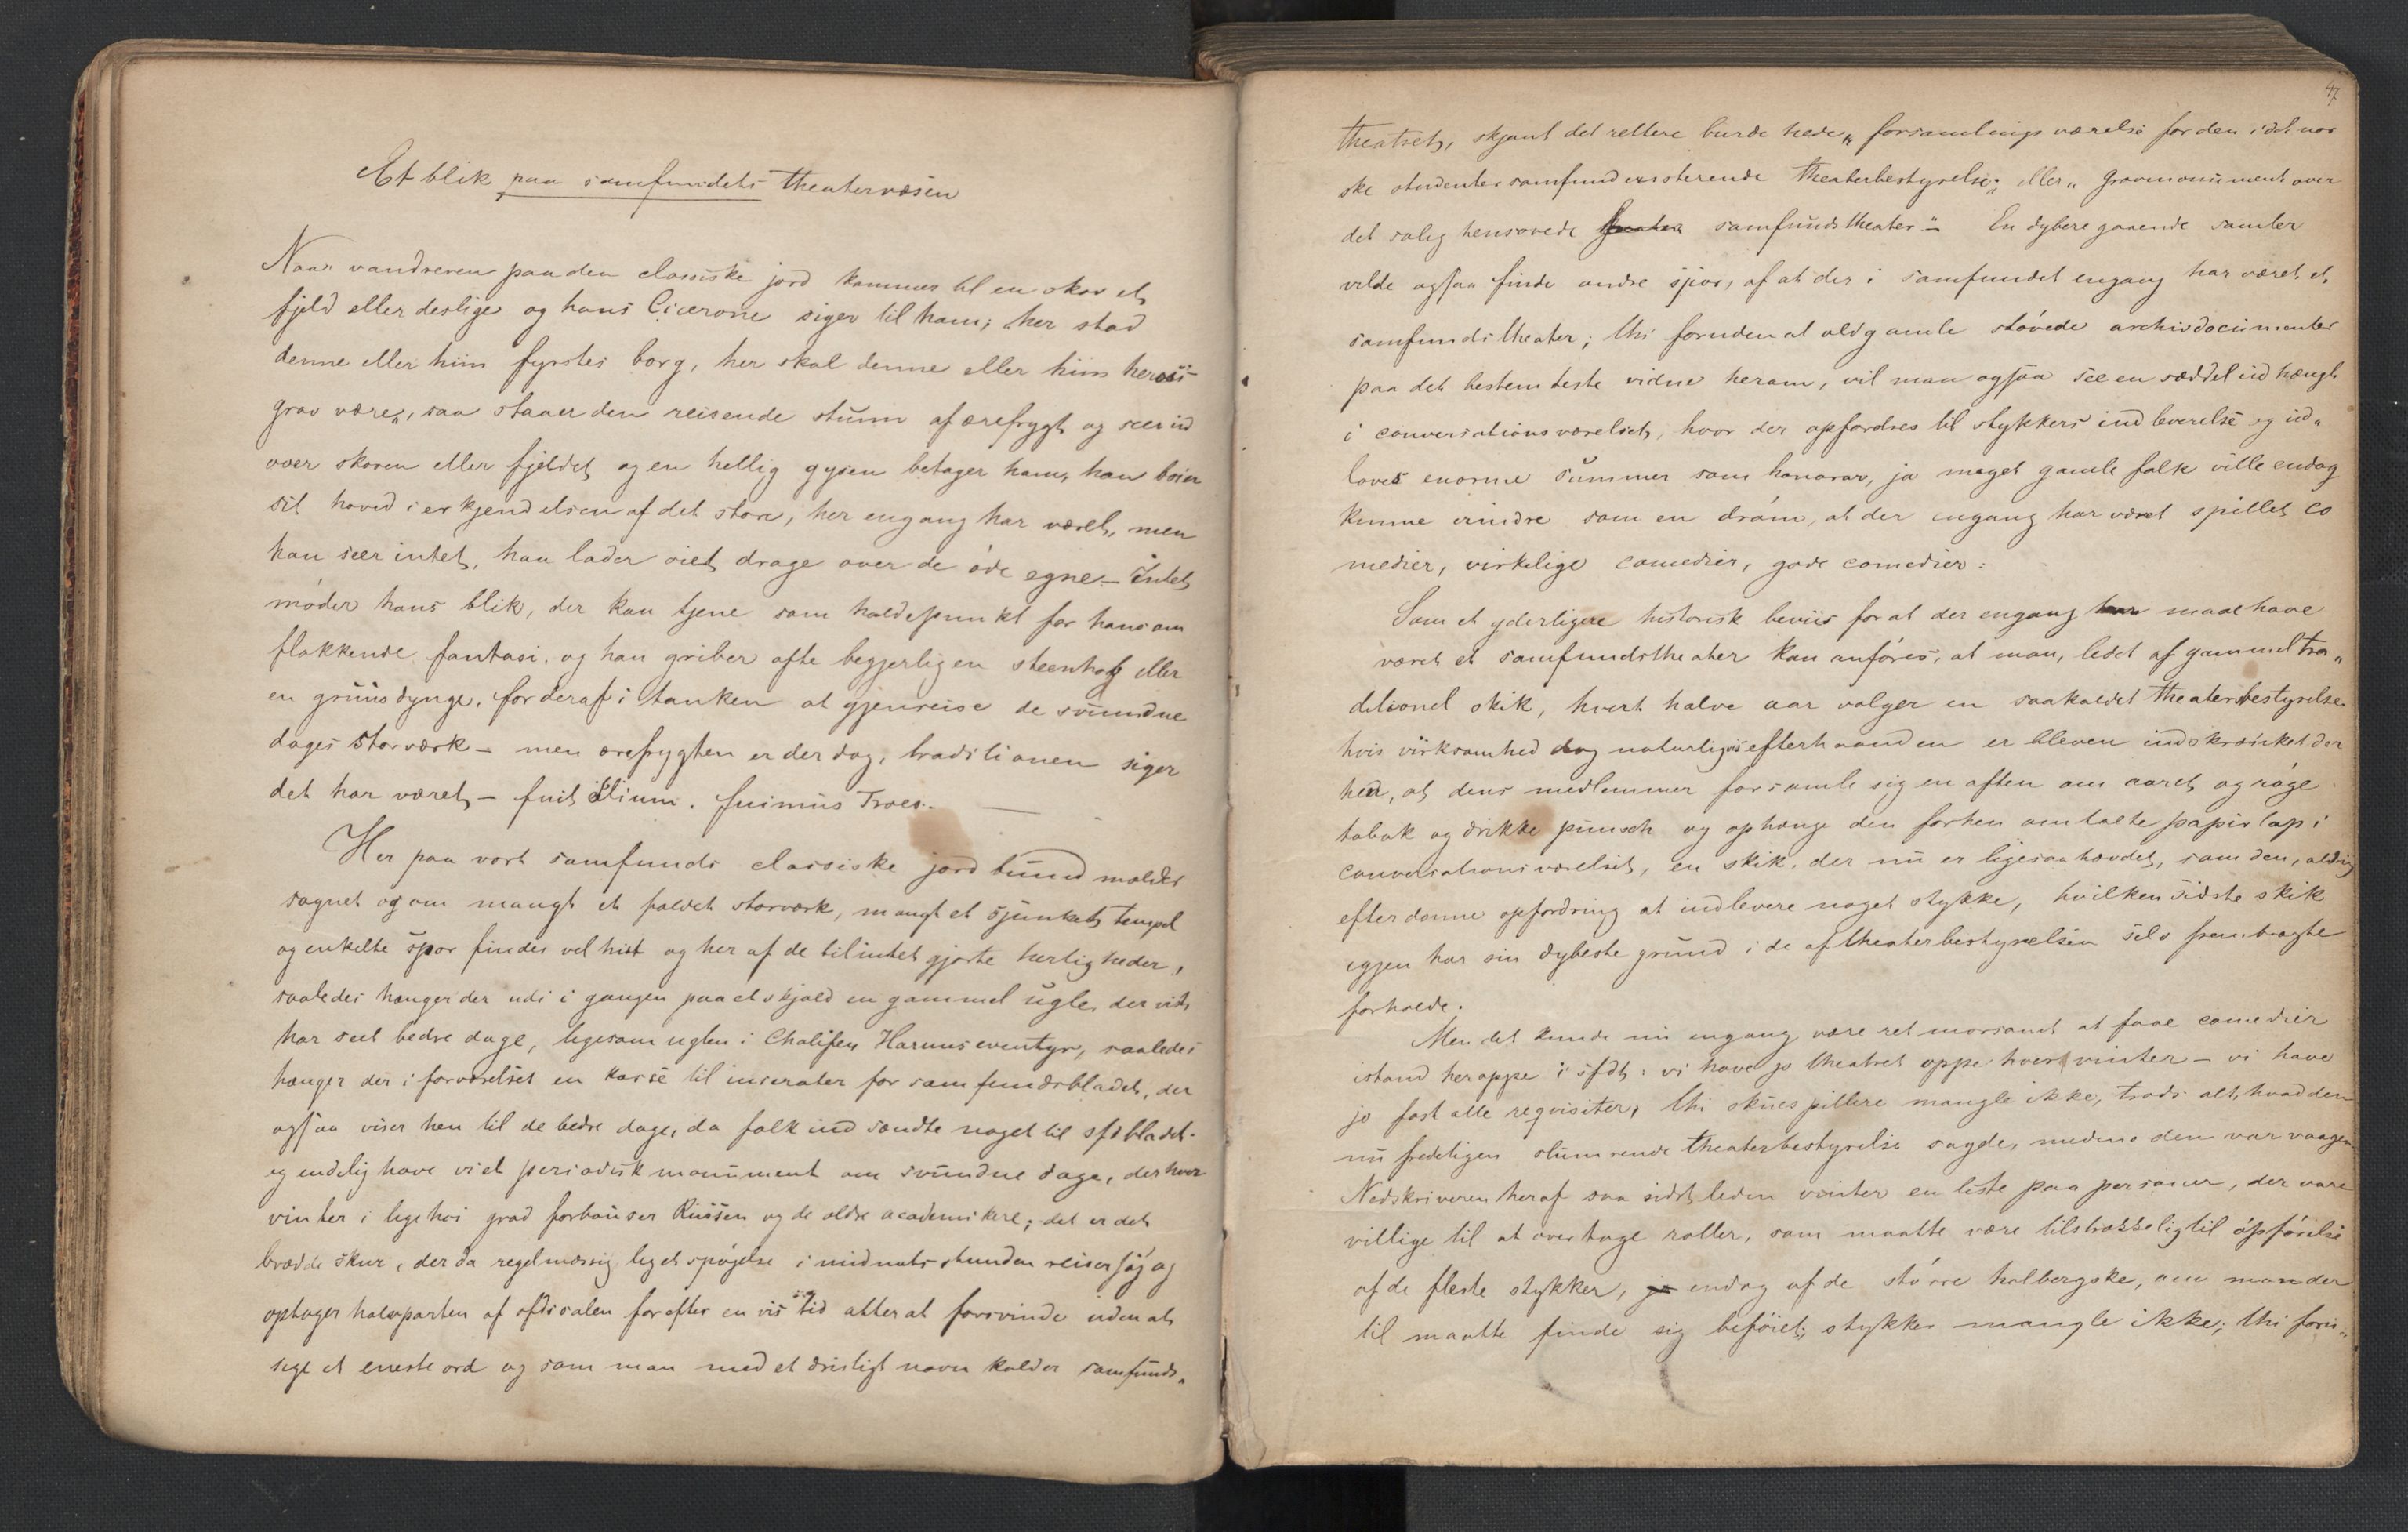 Et blik paa samfundets theatervæsen
Naar vandreren paa den classiske jord kommer til en skov et
fjeld eller deslige og hans Cicerone siger til ham; her stod
denne eller hiin fyrstes borg, her skal denne eller hiin heros's
grav være", saa staaer den reisende stum af ærefrygt og seer ud
over skoven eller fjeldet og en hellig gysen betager ham, han boier
sit hoved i erkjendelsen af det store, her engang har været, men
han seer intet, han lader oiet drage over de øde egne – intet
møder hans blik, der kan tjene som holdepunkt for hans om
flakkende fantasi, og han griber ofte begjerlig en steenhob eller
en gruusdynge, for deraf i tanken at gjenreise de svundne
dages storværk – men ærefrygten er der dog, traditionen siger
det har været, – fuit Ilium. fuimus Troes. —
Her paa vort samfunds classiske jordbund melder
sagnet og om mangt et faldet storværk, mangt et sjunket tempel
og enkelte spor findes vel hist og her af de tilintetgjorte herligheder,
saaledes hænger der ude i gangen paa et skjold en gammel ugle, der vist
har seet bedre dage, ligesom uglen i Chalifen Haruns eventyr, saaledes
hænger der i forværelset en kasse til inserater for samfundsbladet, der
ogsaa viser hen til de bedre dage, da folk indsendte noget til sfdbladet.
og endelig have vi et periodisk monument om svundne dage, der hver
vinter i lige høi grad forbauser Russen og de ældre academikere; det er det
brædde skur, der da regelmæssig lig et spøgelse i midnatsstunden reiser sig og
optager halvparten af sfdssalen for efter en vis tid atter at forsvinde uden at
sige et eneste ord og som man med et dristigt navn kalder samfunds„
47
theatret, skjønt det rettere burde hede „forsamlings værelse for den i det nor
ske studentersamfund existerende theaterbestyrelse", eller „gravmonument over
det salig hensovede samfundstheater." – En dybere gaaende samler
vilde ogsaa finde andre spor, af at der i samfundet engang har været et
samfundstheater; thi foruden at oldgamle støvede archivdocumenter
paa det bestemteste vidne herom, vil man ogsaa see en seddel udhængt
i conversationsværelset, hvor der opfordres til stykkers indleverelse og ud„
loves enorme summer som honorar, ja meget gamle folk ville endog
kunne erindre som en drøm, at der engang har været spillet co
medier, virkelige comedier, gode comedier.
Som et yderligere historisk beviis for at der engang har maae have
været et samfundstheater kan anføres, at man, ledet af gammel tra„
ditionel skik, hvert halve aar vælger en saakaldet theaterbestyrelse
hvis virksomhed dog naturligviis efterhaanden er bleven indskrænket der
hen, at dens medlemmer forsamle sig en aften om aaret og røge
tobak og drikke punsch og ophænge den forhen omtalte papirlap i
conversationsværelset, en skik, der nu er ligesaa hævdet, som den, aldrig
efter denne opfordring at indlevere noget stykke, hvilken sidste skik
igjen har sin dybeste grund i de af theaterbestyrelsen selv frembragte
forholde.
Men det kunde nu engang være ret morsomt at faae comedier
istand her oppe i sfdt: vi have jo theatret oppe hvert vinter – vi have
jo fast alle reqvisiter, thi skuespillere mangle ikke, trods alt, hvad den
nu fredeligen slumrende theaterbestyrelse sagde, medens den var vaagen
Nedskriveren heraf saa sidstleden vinter en liste paa personer, der vare
villige til at overtage roller, som maatte være tilstrækkelig til opførelse
af de fleste stykker, ja endog af de større holbergske, om man der
til maatte finde sig beføiet; stykker mangle ikke; thi foru„